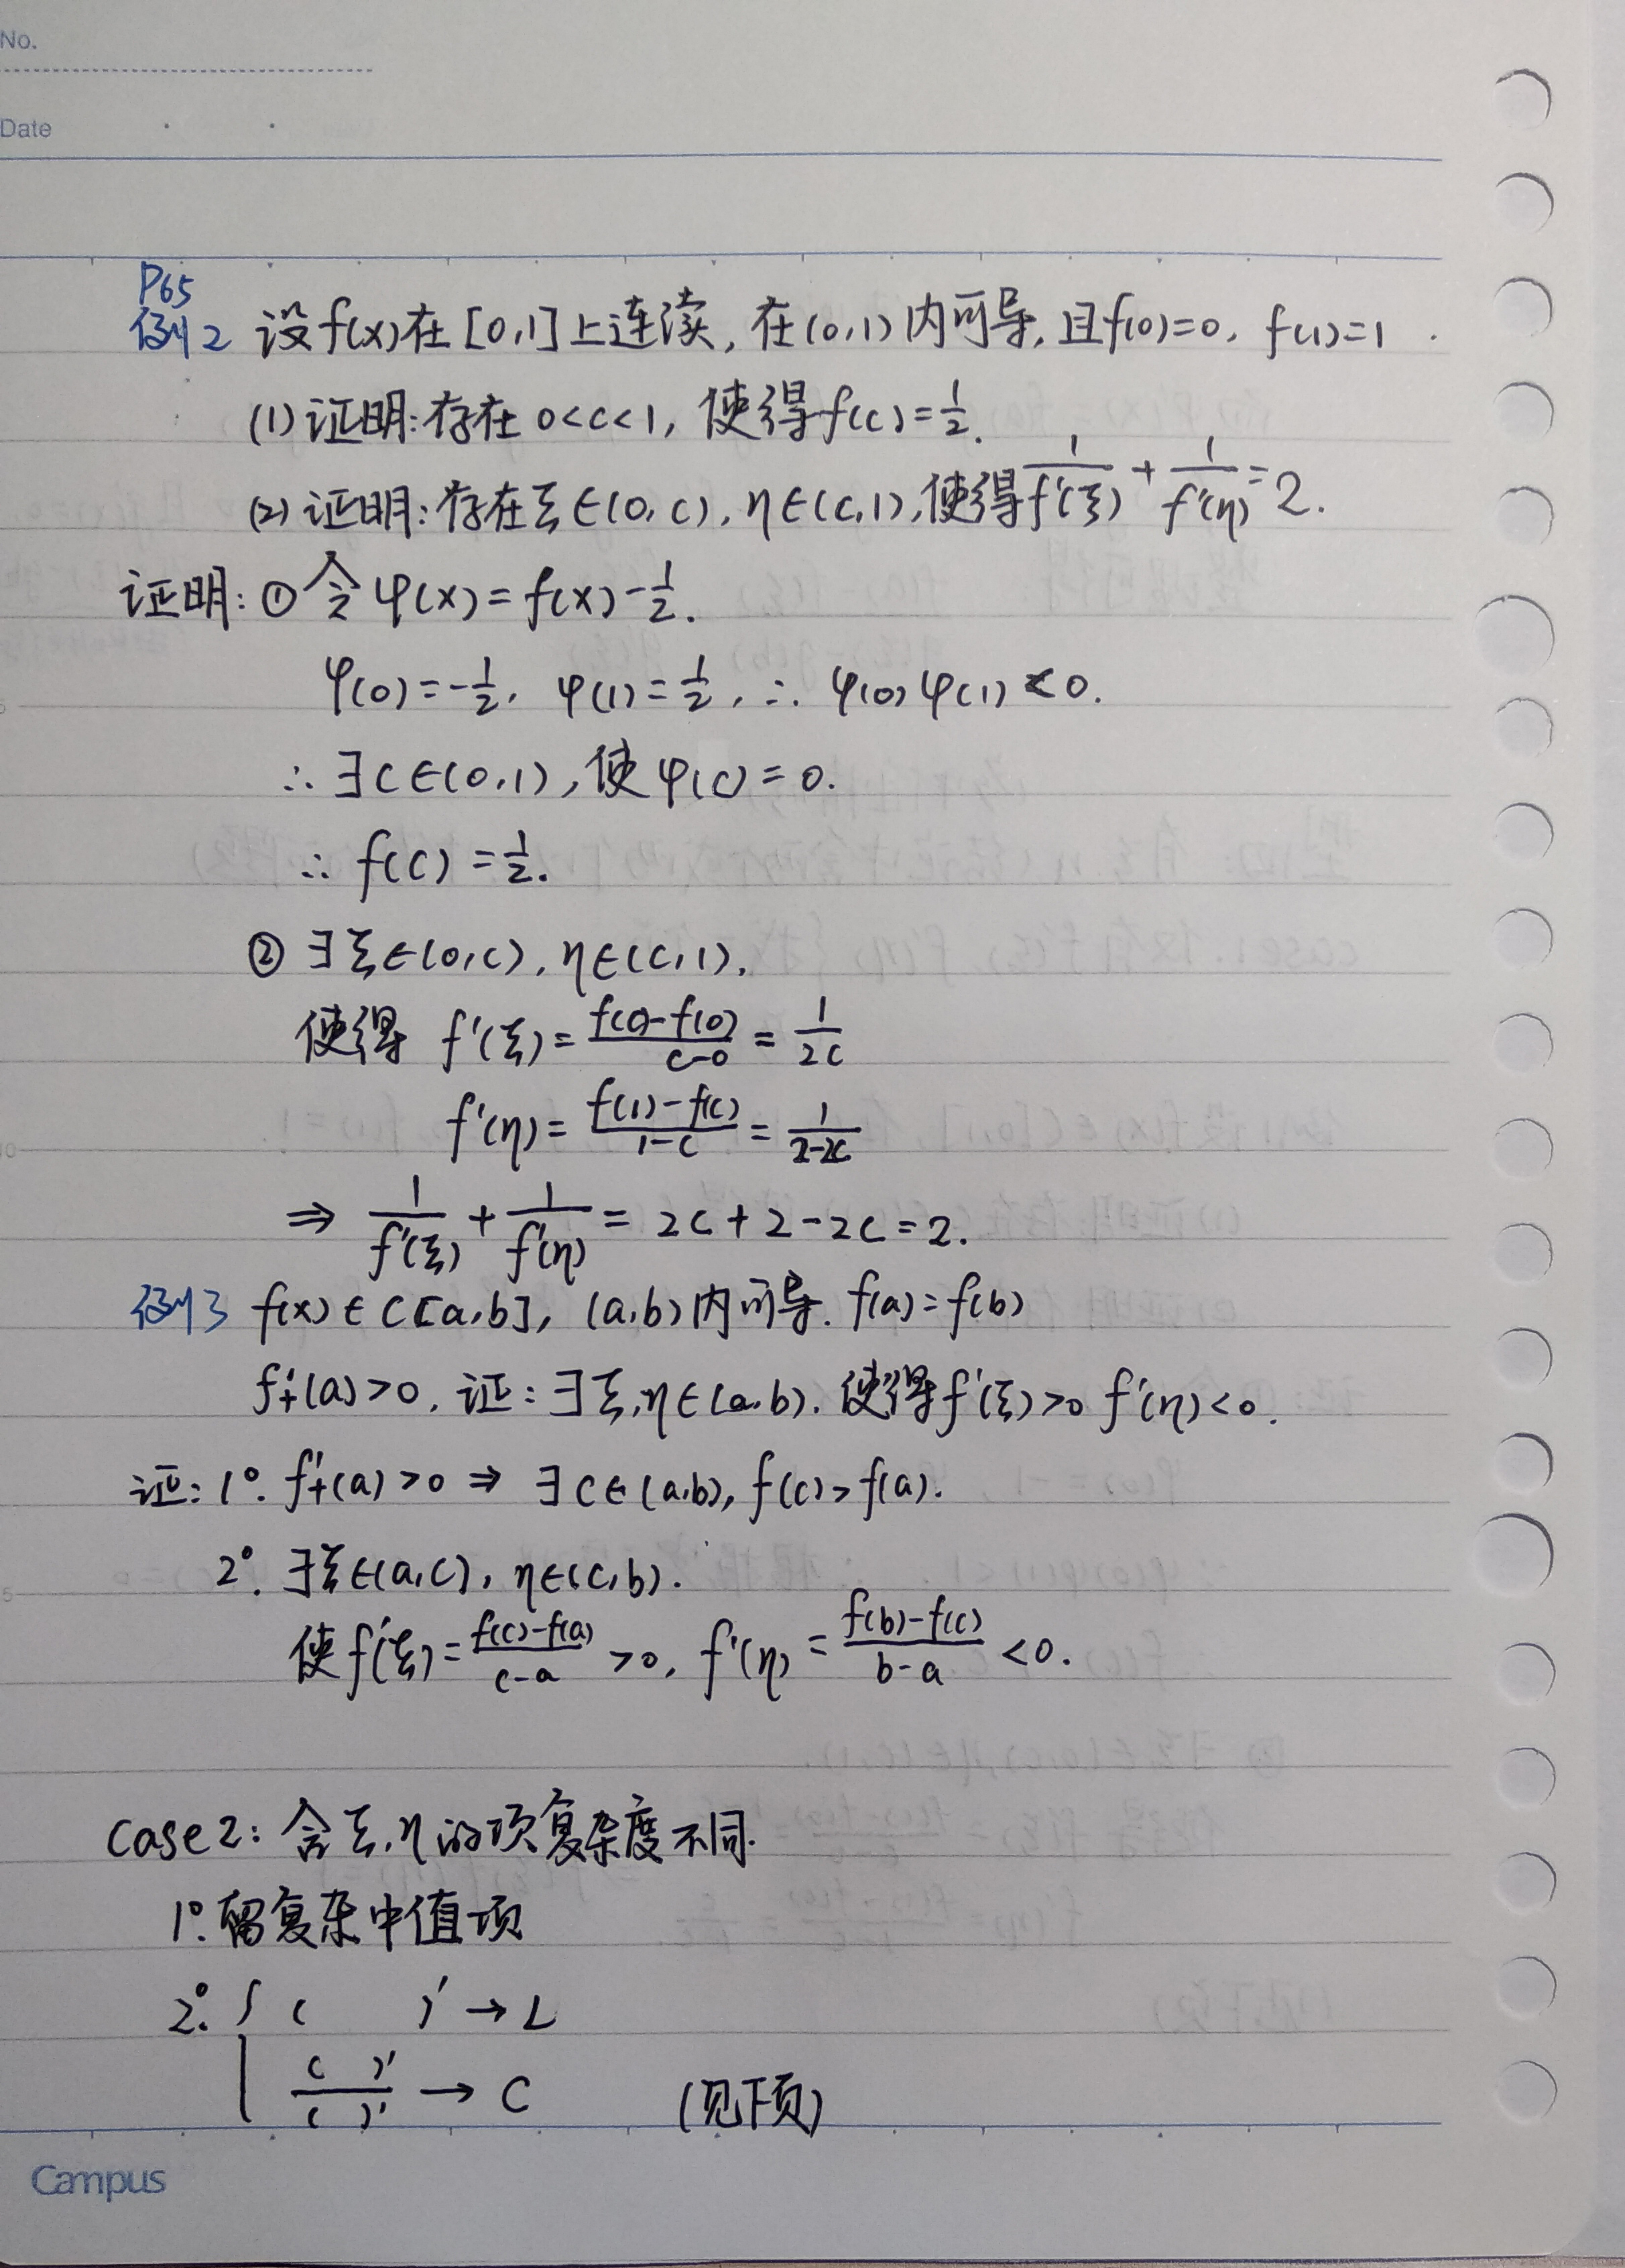 No.
Date
P65
例2 设f(x)在[0,1]上连续,在(0,1)内可导,且f(0)=0, f(1)=1.
(1)证明:存在0<c<1,使得f(c)=1/2.
(2)证明:存在ξ∈(0,c),η∈(c,1),使得1/f'(ξ)+1/f'(η)=2.
证明:①令φ(x)=f(x)-1/2.
φ(0)=-1/2, φ(1)=1/2, ∴ φ(0)φ(1)<0.
∴∃c∈(0,1),使φ(c)=0.
∴ f(c)=1/2.
② ∃ξ∈(0,c),η∈(c,1),
使得 f'(ξ)=(f(c)-f(0))/(c-0)=1/(2c)
f'(η)=(f(1)-f(c))/(1-c)=1/(2-2c)
⇒ 1/f'(ξ)+1/f'(η)=2c+2-2c=2.
例3 f(x)∈C[a,b], (a,b)内可导. f(a)=f(b)
f'₊(a)>0, 证:∃ξ,η∈(a,b).使得f'(ξ)>0 f'(η)<0.
证:1°. f'₊(a)>0 ⇒ ∃c∈(a,b), f(c)>f(a).
2°. ∃ξ∈(a,c), η∈(c,b).
使f'(ξ)=(f(c)-f(a))/(c-a)>0, f'(η)=(f(b)-f(c))/(b-a)<0.
case2:含ξ,η的项复杂度不同.
1°.留复杂中值项
2°. { ( )' → L
( )'/( )' → C (见下页)
Campus